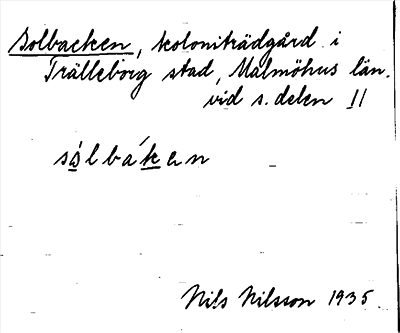 Solbacken, koloniträdgård i
Trälleborg stad, Malmöhus län.
vid s. delen II
sólbáken
Nils Nilsson 1935.